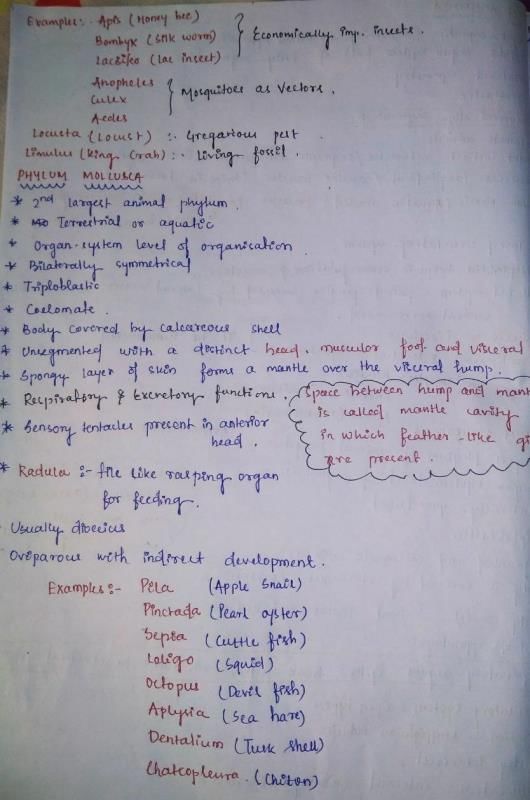 Examples:- Apis (Honey bee)
Bombyx (Silk worm)
Laccifeo (Lac insect)
Economically imp. insects.
Anopheles
Culex
Aedes
Mosquitoes as Vectors.
Locusta (Locust) :- Gregarious pest
Limulus (King Crab) :- Living fossil.
PHYLUM MOLLUSCA
* 2nd largest animal phylum.
* Terrestrial or aquatic
* Organ-system level of organisation
* Bilaterally symmetrical
* Triploblastic
* Coelomate.
* Body covered by calcareous shell
* Unsegmented with a distinct head, muscular foot and visceral
* Spongy layer of skin forms a mantle over the visceral hump.
* Respiratory & Excretory functions.
Space between hump and mant
is called mantle cavity
in which feather-like gi
are present.
* Sensory tentacles present in anterior
head.
* Radula :- file like rasping organ
for feeding.
Usually dioecius
Oviparous with indirect development.
Examples:- Pila (Apple Snail)
Pinctada (Pearl oyster)
Sepia (Cuttle fish)
Loligo (Squid)
Octopus (Devil fish)
Aplysia (Sea hare)
Dentalium (Tusk shell)
Chaetopleura. (Chiton)